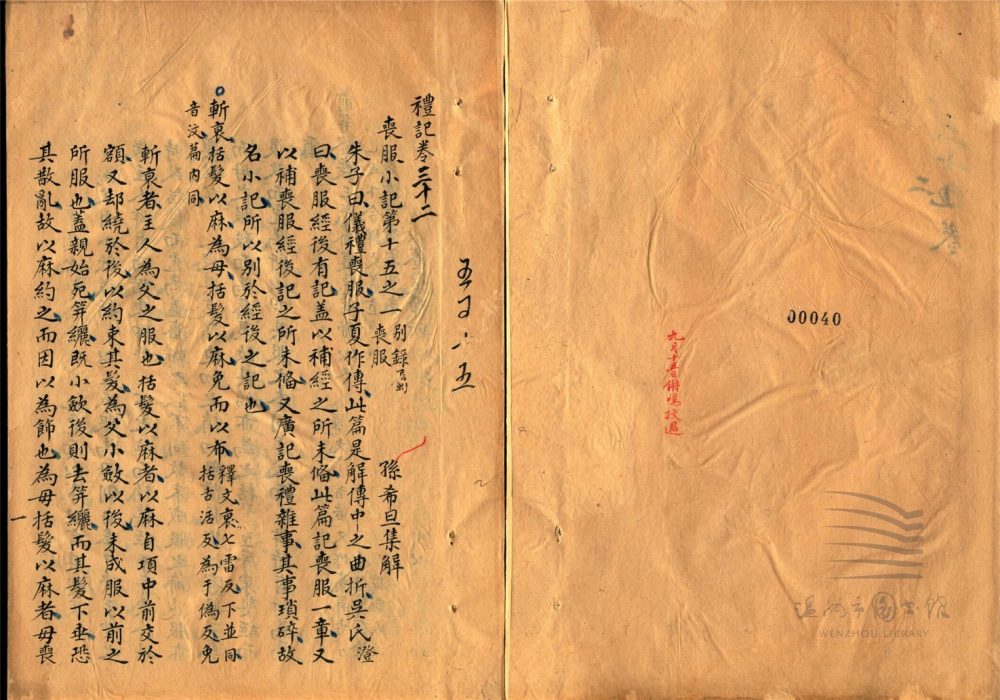 九月十五日鏘鳴校過
00040
溫州市圖書館
WENZHOU LIBRARY
禮記卷三十二
喪服小記第十五之一
別錄
喪服
孫希旦集解
朱子曰儀禮喪服子夏作傳此篇是解傳中之曲折吳氏澄
曰喪服經後有記蓋以補經之所未僃此篇記喪服一章又
以補喪服經後記之所未僃又廣記喪禮雜事其事瑣碎故
名小記所以別於經後之記也
斬衰括髮以麻為母括髮以麻免而以布
釋文衰七雷反下並同
括古活反為于偽反免
音汶篇內同
斬衰者主人為父之服也括髮以麻者以麻自項中前交於
額又却繞於後以約束其髮為父小斂以後未成服以前之
所服也蓋親始死笄纚既小斂後則去笄纚而其髮下垂恐
其散亂故以麻約之而因以為飾也為母括髮以麻者母喪
一